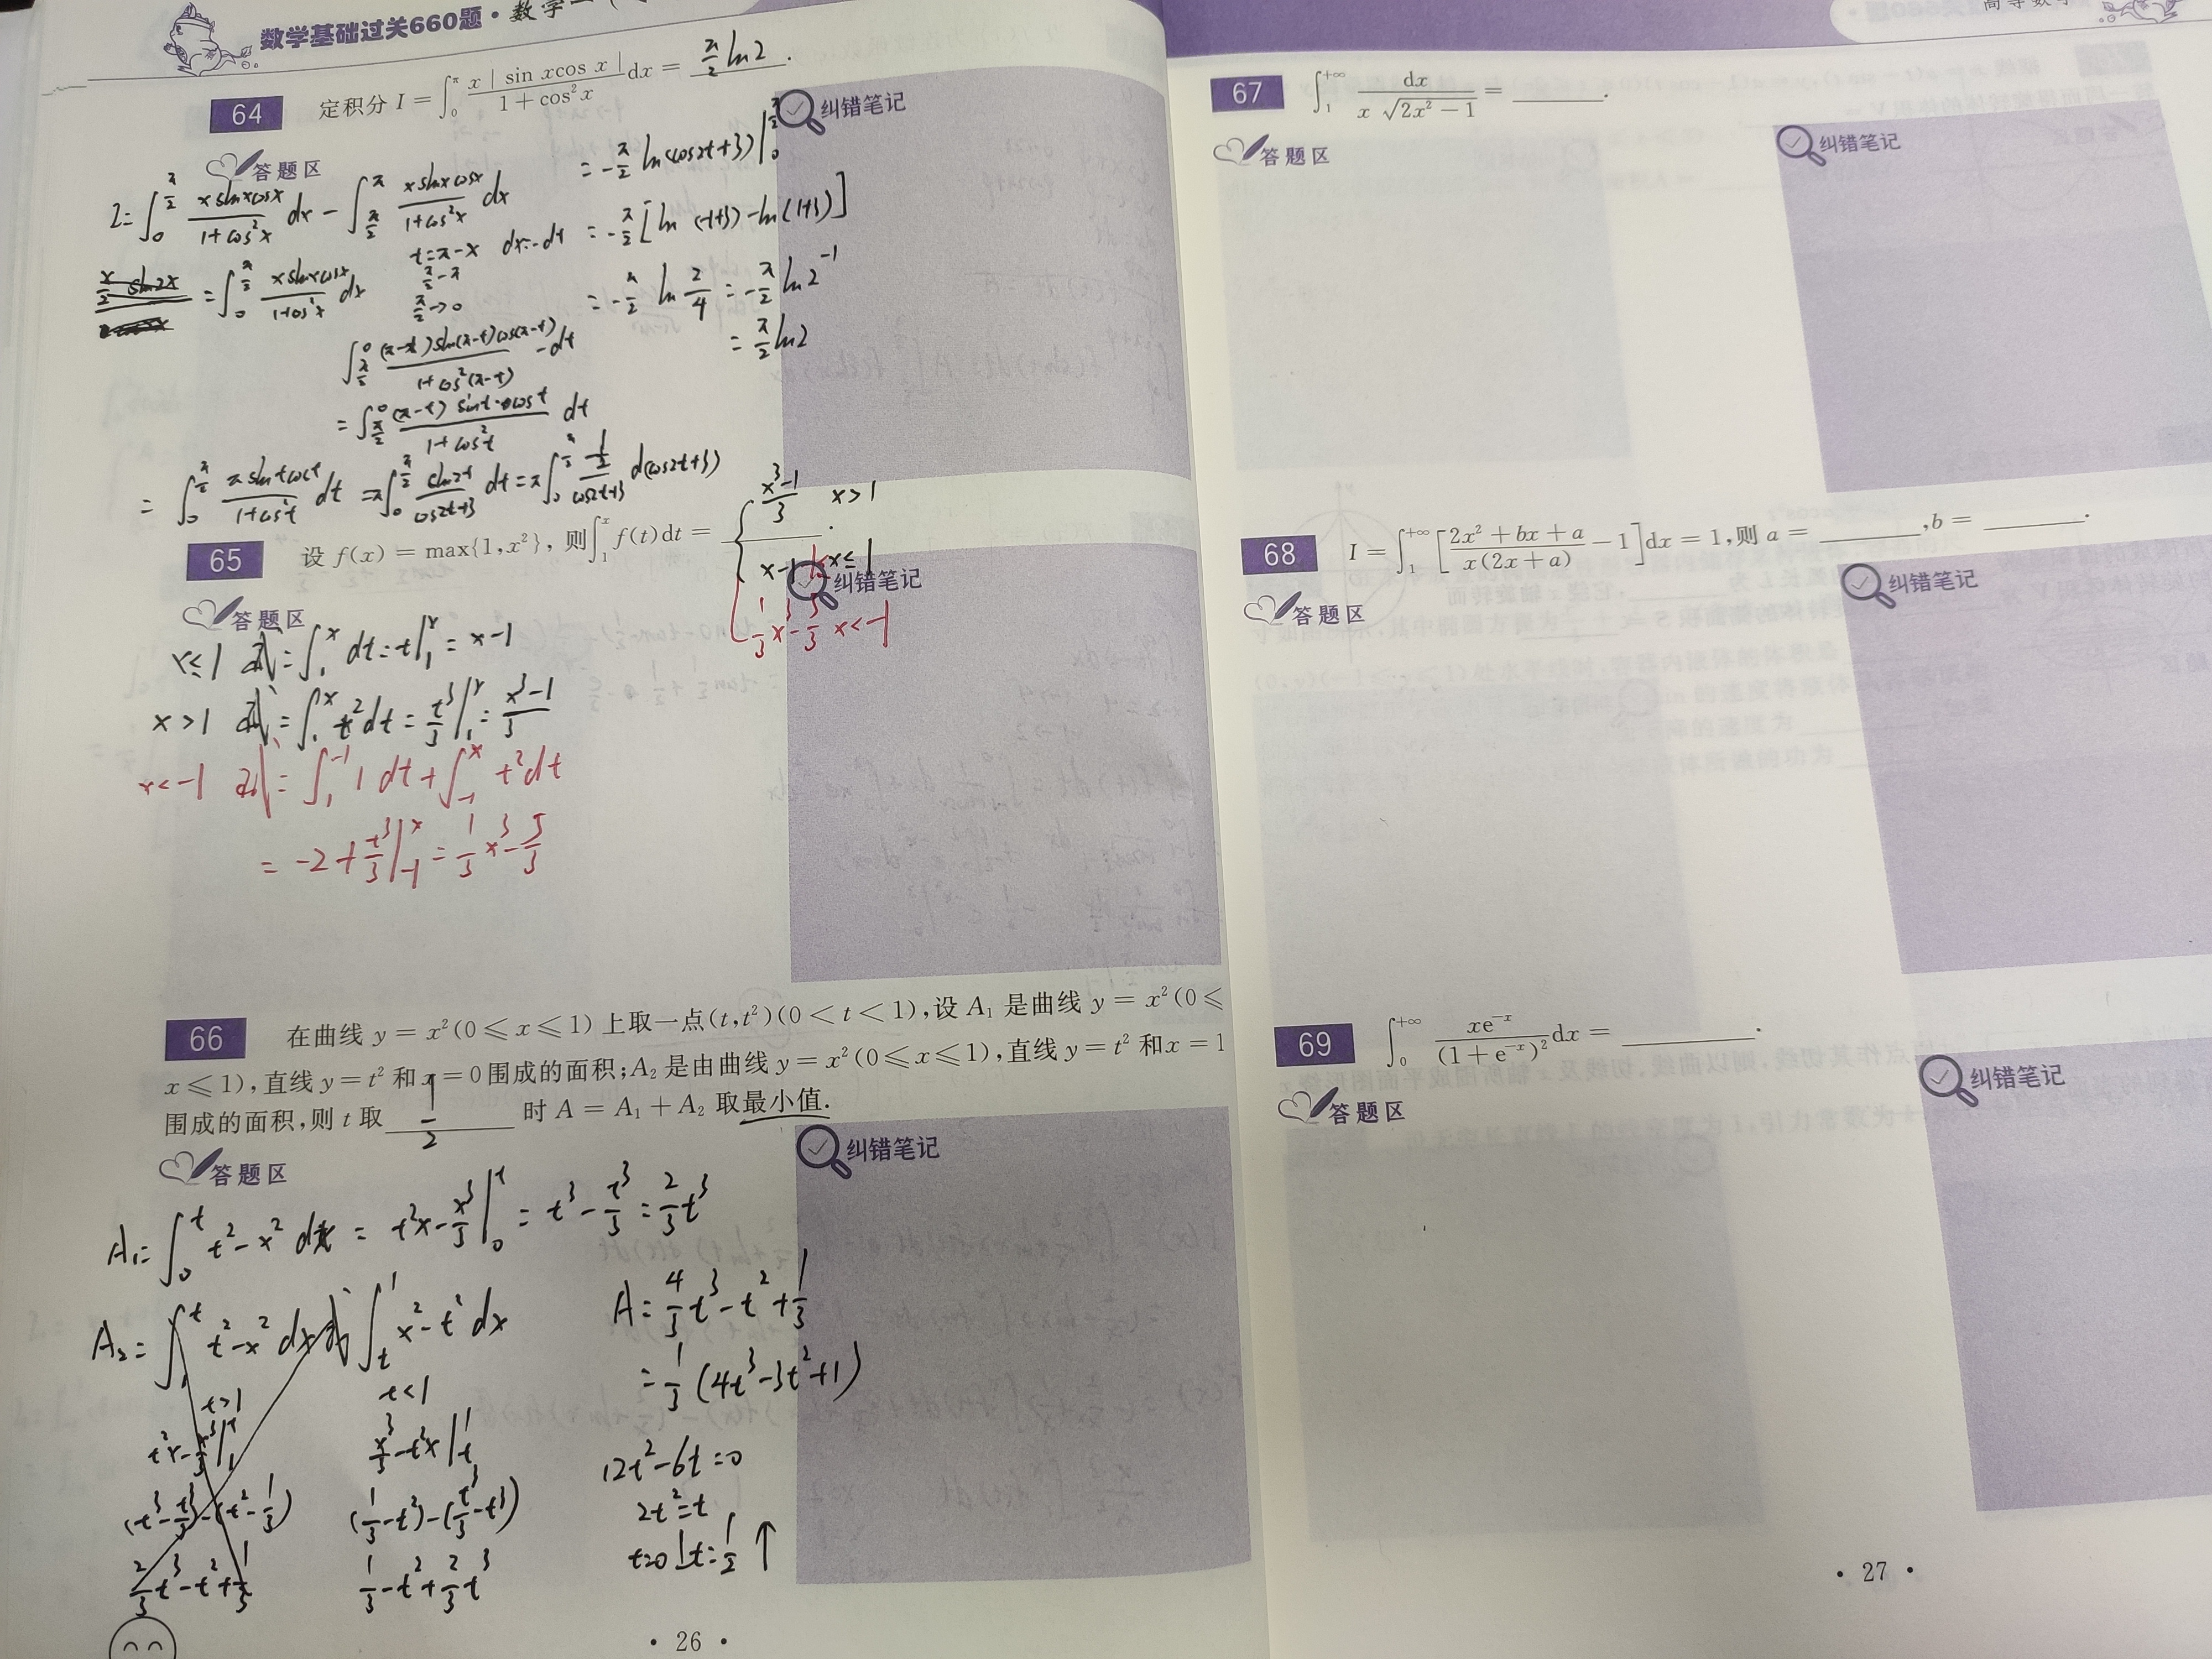 数学基础过关660题·数学一
64 定积分 I = ∫₀^π x | sin xcos x | / (1 + cos²x) dx = π/2 ln2 .
纠错笔记
答题区
I = ∫₀^{π/2} xsinxcosx/(1+cos²x) dx − ∫_{π/2}^π xsinxcosx/(1+cos²x) dx
t=π-x dx=-dt
= ∫₀^{π/2} xsinxcosx/(1+cos²x) dx
π/2→0
∫_{π/2}^0 (π-t)sin(π-t)cos(π-t)/(1+cos²(π-t)) -dt
= ∫_{π/2}^0 (π-t) sint·cost/(1+cos²t) dt
= ∫₀^{π/2} πsintcost/(1+cos²t) dt = π∫₀^{π/2} sin2t/(cos2t+3) dt = π∫₀^{π/2} -½/(cos2t+3) d(cos2t+3)
= -π/2 ln(cos2t+3)|₀^{π/2}
= -π/2 [ln(-1+3)-ln(1+3)]
= -π/2 ln 2/4 = -π/2 ln2⁻¹
= π/2 ln2
65 设 f(x) = max{1,x²}, 则∫₁^x f(t)dt = { (x³-1)/3 x>1 .
x-1 x≤1
1/3x³-5/3 x<-1
纠错笔记
答题区
x≤1 = ∫₁^x dt=t|₁^x = x-1
x>1 = ∫₁^x t²dt = t³/3|₁^x = (x³-1)/3
x<-1 = ∫₁^{-1} 1dt+∫_{-1}^x t²dt
= -2+t³/3|_{-1}^x = 1/3x³-5/3
66 在曲线 y = x²(0 ≤ x ≤ 1) 上取一点(t,t²)(0 < t < 1),设 A₁ 是曲线 y = x²(0 ≤
x ≤ 1),直线 y = t² 和 x = 0 围成的面积;A₂ 是由曲线 y = x²(0 ≤ x ≤ 1),直线 y = t² 和 x = 1
围成的面积,则 t 取 1/2 时 A = A₁ + A₂ 取最小值.
纠错笔记
答题区
A₁= ∫₀^t t²-x² dx = t²x-x³/3|₀^t = t³-t³/3 = 2/3t³
A₂= ∫₁^t t²-x² dx 或 ∫_t^1 x²-t² dx
t>1 t<1
t²x-x³/3|₁^t x³/3-t²x|_t^1
(t³-t³/3)-(t²-1/3) (1/3-t²)-(t³/3-t³)
2/3t³-t²+1/3 1/3-t²+2/3t³
A= 4/3t³-t²+1/3
= 1/3(4t³-3t²+1)
12t²-6t=0
2t²=t
t=0 t=1/2 ↑
· 26 ·
高等数学
67 ∫₁^{+∞} dx / (x √(2x² − 1)) = ______.
答题区
纠错笔记
68 I = ∫₁^{+∞} [(2x² + bx + a)/(x(2x + a)) − 1]dx = 1,则 a = ______,b = ______.
答题区
纠错笔记
69 ∫₀^{+∞} xe^{−x}/(1 + e^{−x})² dx = ______.
答题区
纠错笔记
· 27 ·